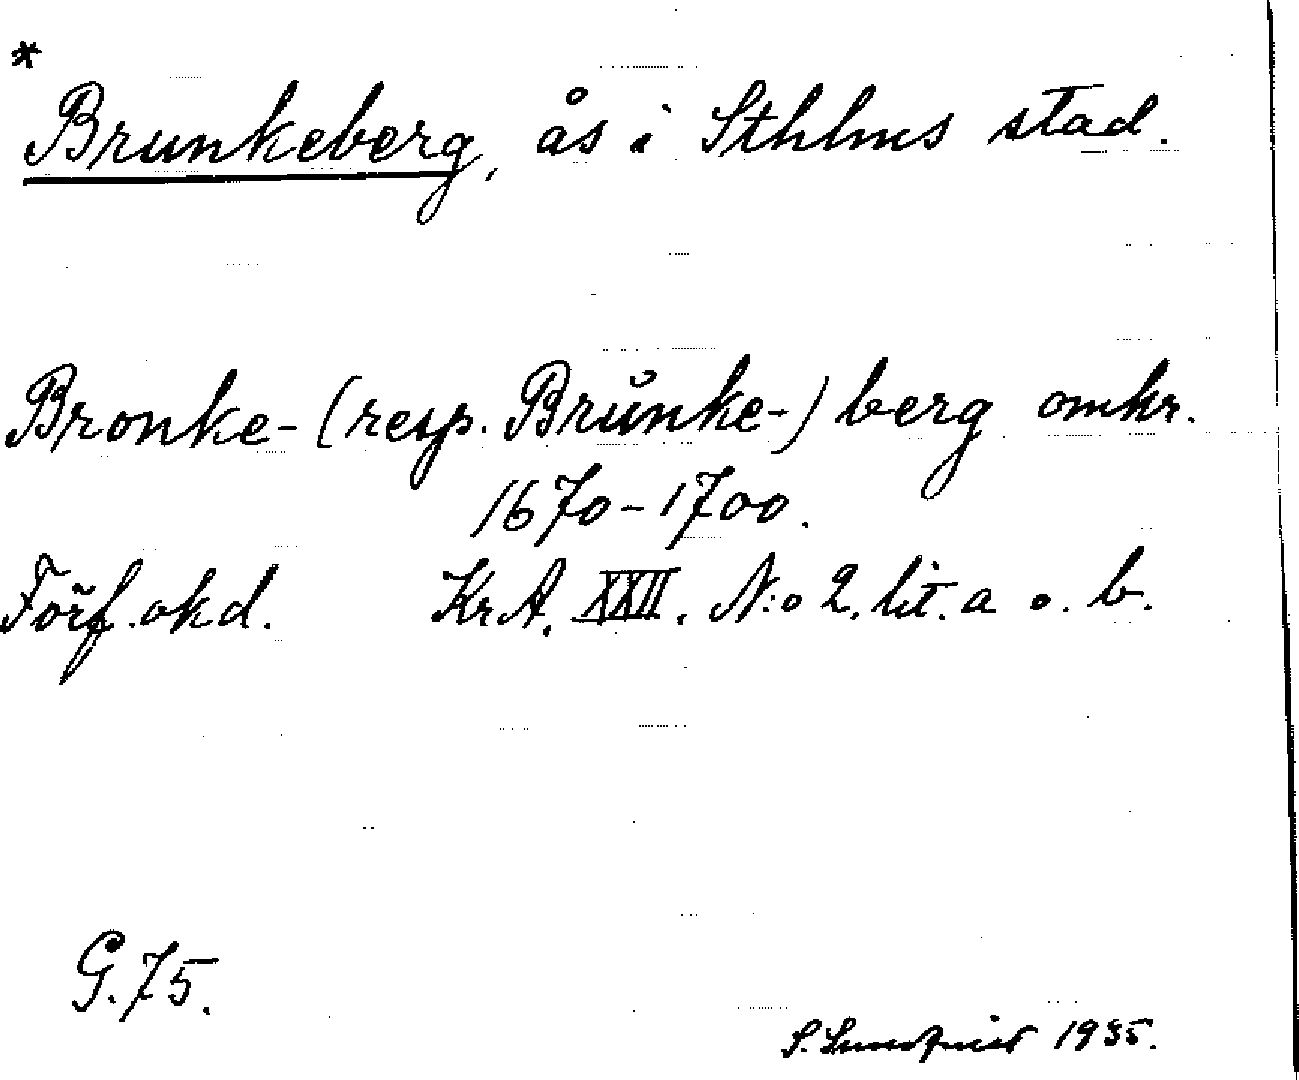 *
Brunkeberg, ås i Sthlms stad.
Bronke- (resp. Brŭnke-) berg omkr.
1670-1700.
Förf. okd. KrA. XXII. N:o 2. lit. a o. b.
G. 75.
S. Sundqvist 1935.